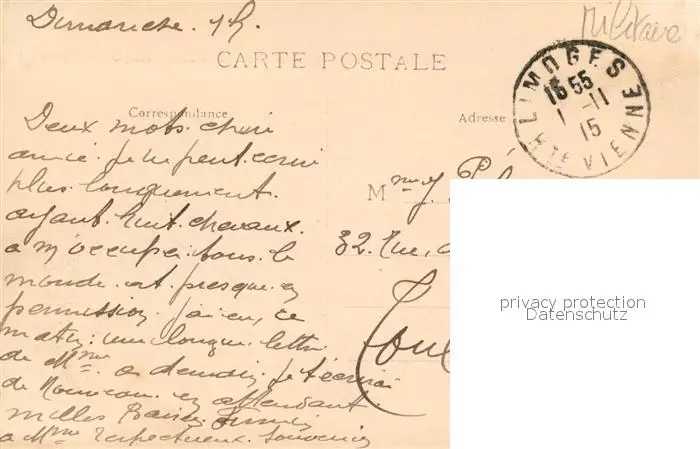 Dimanche. 1h.
Militaire
CARTE POSTALE
LIMOGES
16 55
1 -11
15
Hte VIENNE
Correspondance
Adresse
Deux mots. cheri
amie. je ne peut. ecrire
plus longuement.
ayant. huit. chevaux.
a m'occuper. tous. le
monde. et presque. en
permission. j'ai eu, ce
matin: une longue. lettre
de Mme a demain. je t'écrirai
de Nouveau. en attendant.
milles Baisers
a Mme respectueux. Souvenir
Mme J.
32. Rue,
privacy protection
Datenschutz